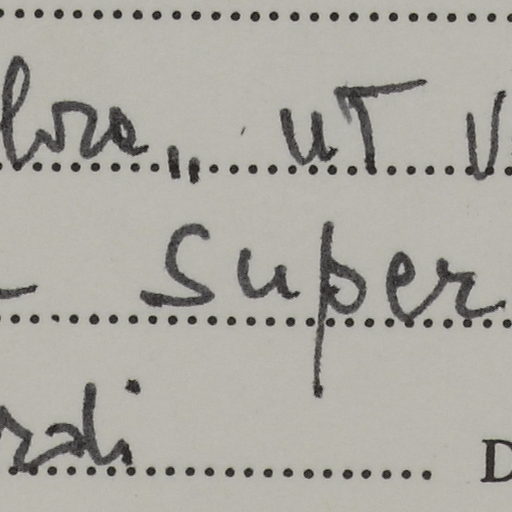 lora„ ut v
super
rdi
D